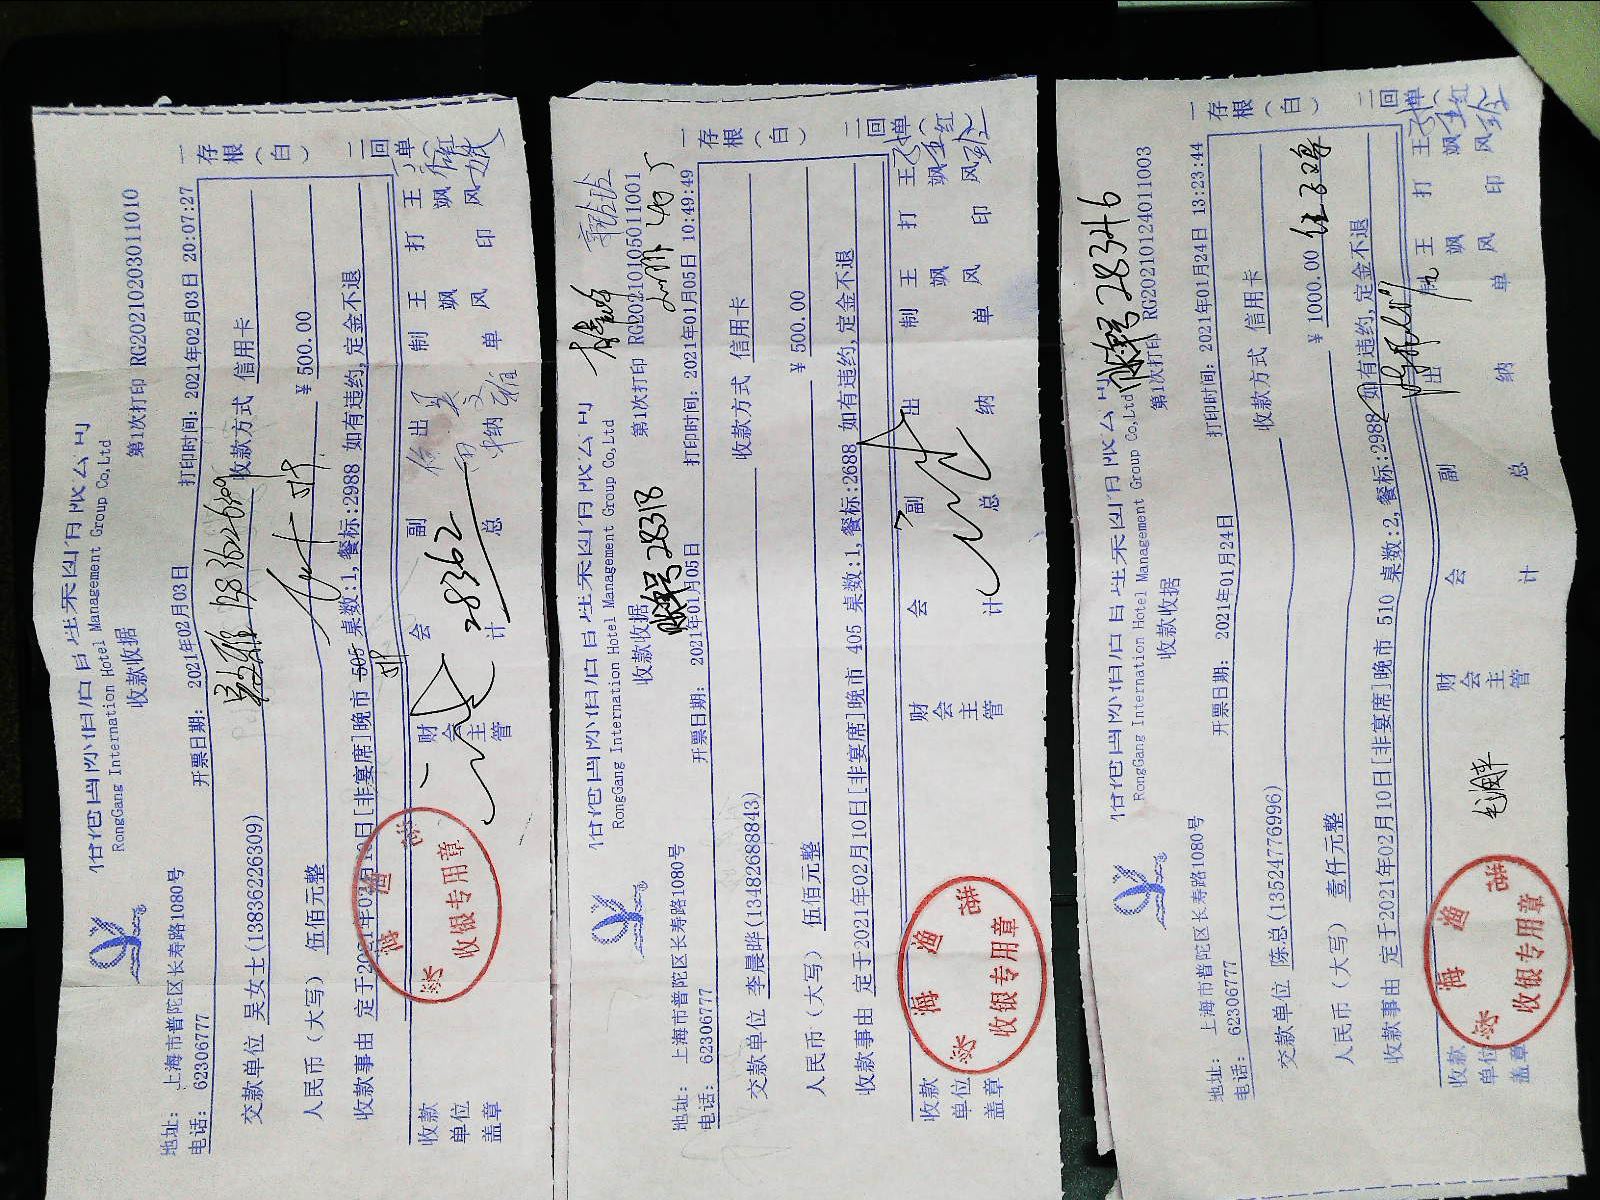 RongGang International Hotel Management Group Co,Ltd
收款收据
第1次打印 RG20210203011010
开票日期: 2021年02月03日
打印时间: 2021年02月03日 20:07:27
地址: 上海市普陀区长寿路1080号
电话: 62306777
交款单位 吴女士(13836226309)
收款方式 信用卡
人民币（大写） 伍佰元整
¥ 500.00
收款事由
[非宴席]晚市 505 桌数:1,餐标:2988 如有违约,定金不退
28362
收款单位盖章
财会主管
会计
副总
出纳
制单
王飒风
打印
王飒风
一存根（白）
二回单（红）
收银专用章
RongGang International Hotel Management Group Co,Ltd
收款收据
账单号 28318
第1次打印 RG20210105011001
开票日期: 2021年01月05日
打印时间: 2021年01月05日 10:49:49
地址: 上海市普陀区长寿路1080号
电话: 62306777
交款单位 李晨晔(13482688843)
收款方式 信用卡
人民币（大写） 伍佰元整
¥ 500.00
收款事由 定于2021年02月10日[非宴席]晚市 405 桌数:1,餐标:2688 如有违约,定金不退
收款单位盖章
财会主管
会计
副总
出纳
制单
王飒风
打印
王飒风
一存根（白）
二回单（红）
收银专用章
RongGang International Hotel Management Group Co,Ltd
账单号 28346
收款收据
第1次打印 RG20210124011003
开票日期: 2021年01月24日
打印时间: 2021年01月24日 13:23:44
地址: 上海市普陀区长寿路1080号
电话: 62306777
交款单位 陈总(13524776996)
收款方式 信用卡
人民币（大写） 壹仟元整
¥ 1000.00
收款事由 定于2021年02月10日[非宴席]晚市 510 桌数:2,餐标:2988 如有违约,定金不退
收款单位盖章
财会主管
会计
副总
出纳
制单
王飒风
打印
王飒风
一存根（白）
二回单（红）
收银专用章